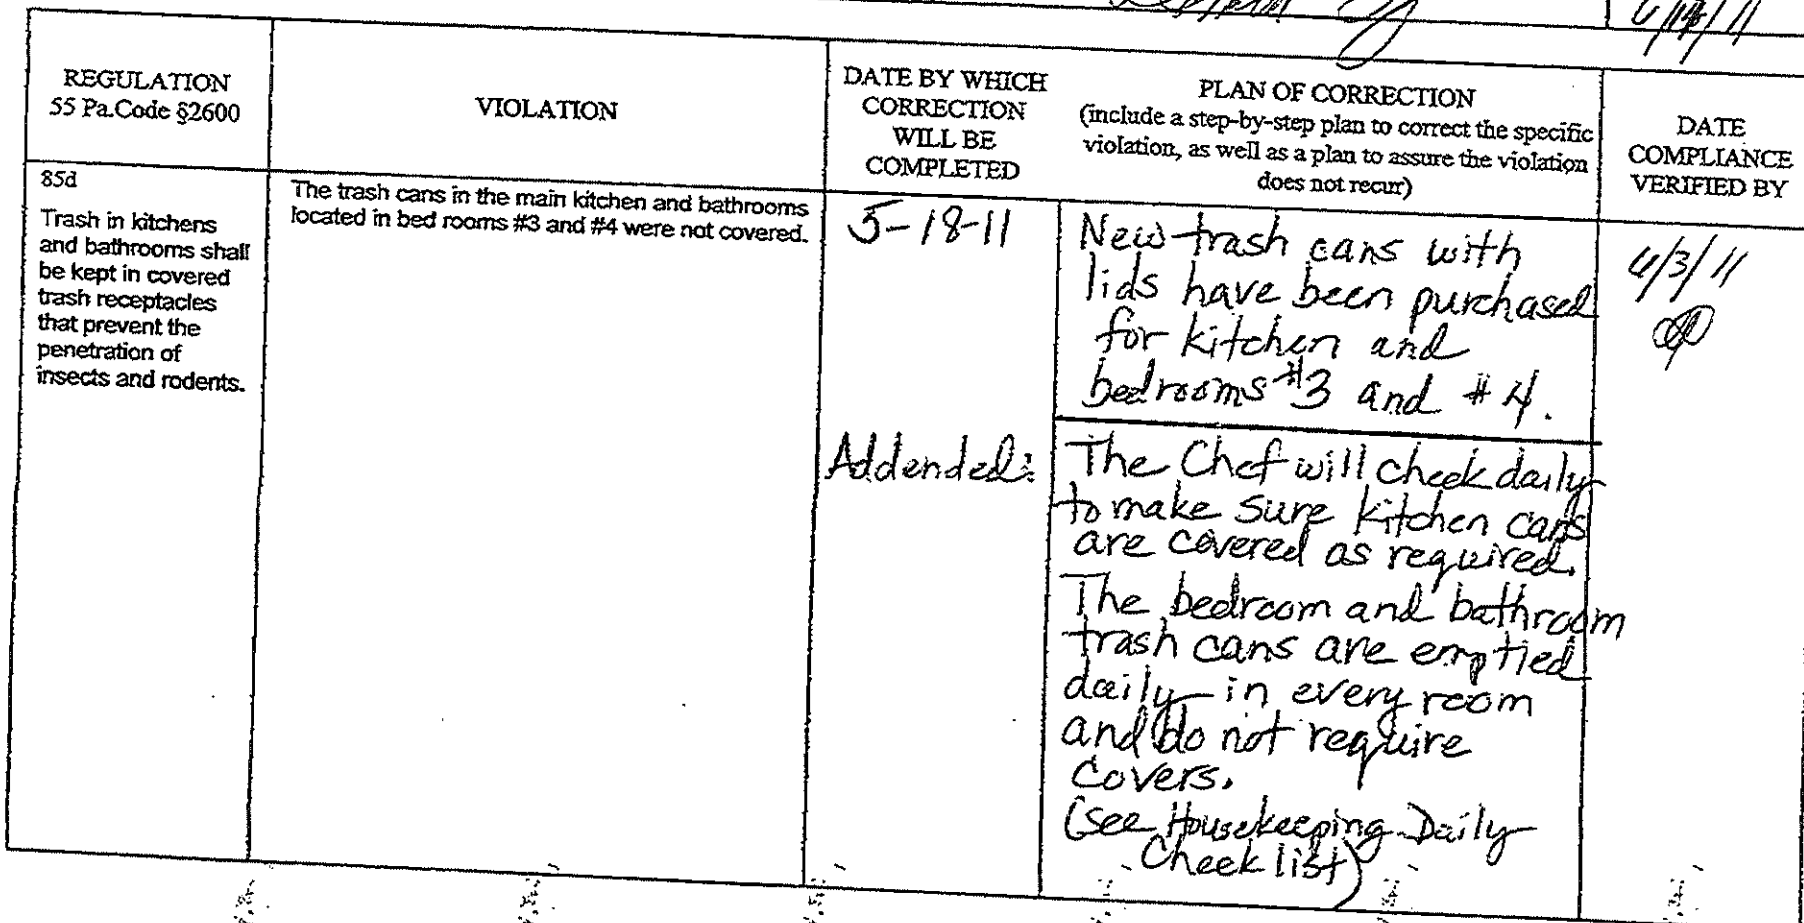 REGULATION
55 Pa.Code §2600
VIOLATION
DATE BY WHICH
CORRECTION
WILL BE
COMPLETED
PLAN OF CORRECTION
(include a step-by-step plan to correct the specific
violation, as well as a plan to assure the violation
does not recur)
DATE
COMPLIANCE
VERIFIED BY
85d
Trash in kitchens
and bathrooms shall
be kept in covered
trash receptacles
that prevent the
penetration of
insects and rodents.
The trash cans in the main kitchen and bathrooms
located in bed rooms #3 and #4 were not covered.
5-18-11
New trash cans with
lids have been purchased
for kitchen and
bedrooms #3 and #4.
Addended:
The Chef will check daily
to make sure kitchen cans
are covered as required.
The bedroom and bathroom
trash cans are emptied
daily in every room
and do not require
covers.
(see Housekeeping Daily
Check list)